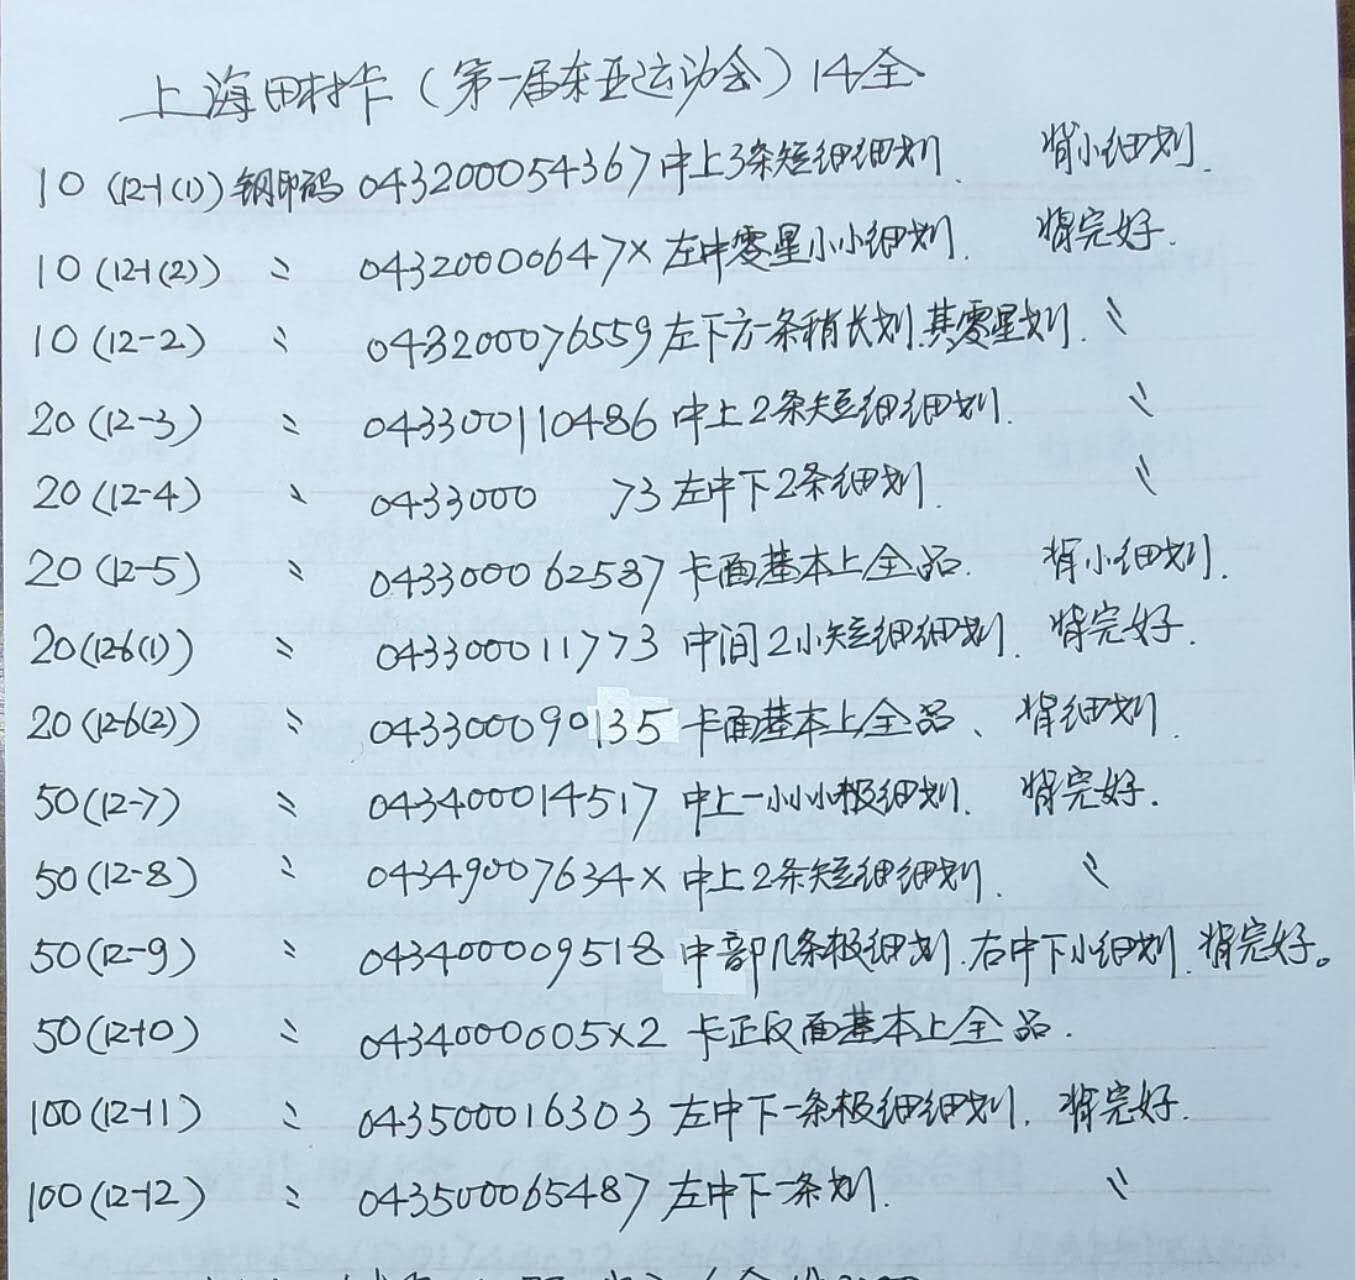 上海田村卡（第一届东亚运动会）14全
10 (12-1(1)) 钢印码 043200054367 中上3条短细细划. 背小细划.
10 (12-1(2)) 〃 04320000647X 左中零星小小细划. 背完好.
10 (12-2) 〃 043200076559 左下方一条稍长划.其零星划. 〃
20 (12-3) 〃 043300110486 中上2条短细细划. 〃
20 (12-4) 〃 0433000 73 左中下2条细划. 〃
20 (12-5) 〃 043300062587 卡面基本上全品. 背小细划.
20 (12-6(1)) 〃 043300011773 中间2小短细细划. 背完好.
20 (12-6(2)) 〃 043300090135 卡面基本上全品、背细划.
50 (12-7) 〃 043400014517 中上一小小小极细划. 背完好.
50 (12-8) 〃 04349007634X 中上2条短细细划. 〃
50 (12-9) 〃 043400009518 中部几条极细划.右中下小细划.背完好。
50 (12-10) 〃 0434000005X2 卡正反面基本上全品.
100 (12-11) 〃 043500016303 左中下一条极细细划. 背完好.
100 (12-12) 〃 043500065487 左中下一条划. 〃